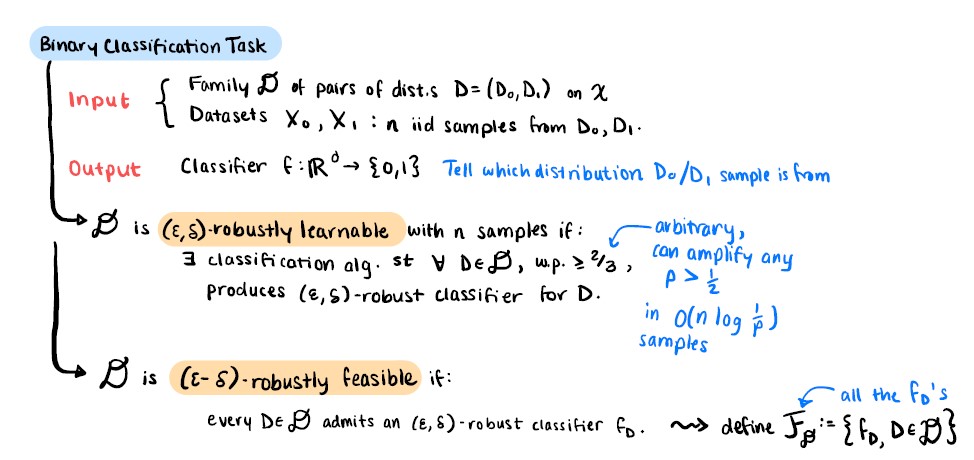 Binary Classification Task
Input { Family 𝒟 of pairs of dist.s D=(D₀,D₁) on χ
Datasets X₀, X₁ : n iid samples from D₀, D₁.
Output Classifier f: ℝᵈ → {0,1} Tell which distribution D₀/D₁ sample is from
𝒟 is (ε,δ)-robustly learnable with n samples if:
∃ classification alg. st ∀ D∈𝒟, w.p. ≥ 2/3,
produces (ε,δ)-robust classifier for D.
arbitrary,
can amplify any
p > 1/2
in O(n log 1/p)
samples
𝒟 is (ε-δ)-robustly feasible if:
all the f_D's
every D∈𝒟 admits an (ε,δ)-robust classifier f_D. ⇝ define ℱ_𝒟 := {f_D, D∈𝒟}